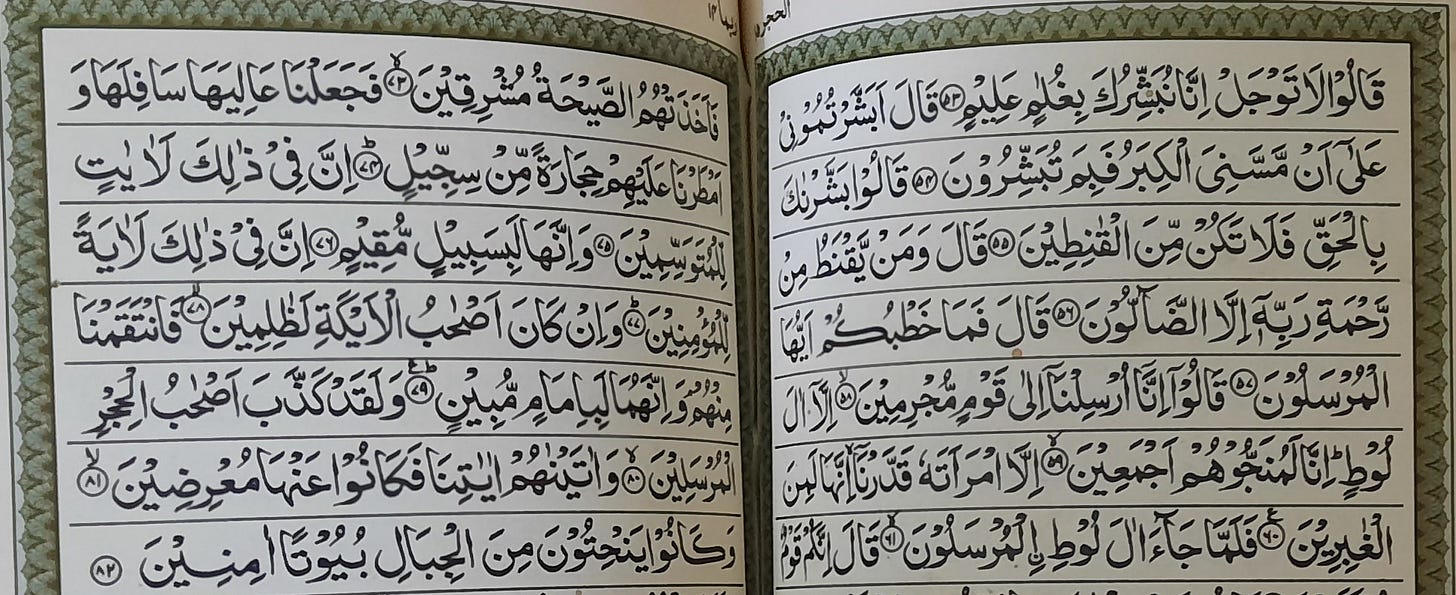 الحجر
قَالُوْا لَا تَوْجَلْ اِنَّا نُبَشِّرُكَ بِغُلٰمٍ عَلِيْمٍ ﴿۵۳﴾ قَالَ اَبَشَّرْتُمُوْنِیْ
عَلٰۤی اَنْ مَّسَّنِیَ الْكِبَرُ فَبِمَ تُبَشِّرُوْنَ ﴿۵۴﴾ قَالُوْا بَشَّرْنٰكَ
بِالْحَقِّ فَلَا تَكُنْ مِّنَ الْقٰنِطِيْنَ ﴿۵۵﴾ قَالَ وَمَنْ يَّقْنَطُ مِنْ
رَّحْمَةِ رَبِّهٖۤ اِلَّا الضَّآلُّوْنَ ﴿۵۶﴾ قَالَ فَمَا خَطْبُكُمْ اَيُّهَا
الْمُرْسَلُوْنَ ﴿۵۷﴾ قَالُوْۤا اِنَّاۤ اُرْسِلْنَاۤ اِلٰی قَوْمٍ مُّجْرِمِيْنَ ۙ﴿۵۸﴾ اِلَّاۤ اٰلَ
لُوْطٍ ؕ اِنَّا لَمُنَجُّوْهُمْ اَجْمَعِيْنَ ۙ﴿۵۹﴾ اِلَّا امْرَاَتَهٗ قَدَّرْنَاۤ ۙ اِنَّهَا لَمِنَ
الْغٰبِرِيْنَ ﴿۶۰﴾ فَلَمَّا جَآءَ اٰلَ لُوْطِ ِۨالْمُرْسَلُوْنَ ۙ﴿۶۱﴾ قَالَ اِنَّكُمْ قَوْمٌ
ربما ۱۴
فَاَخَذَتْهُمُ الصَّيْحَةُ مُشْرِقِيْنَ ۙ﴿۷۳﴾ فَجَعَلْنَا عَالِيَهَا سَافِلَهَا وَ
اَمْطَرْنَا عَلَيْهِمْ حِجَارَةً مِّنْ سِجِّيْلٍ ؕ﴿۷۴﴾ اِنَّ فِیْ ذٰلِكَ لَاٰيٰتٍ
لِّلْمُتَوَسِّمِيْنَ ﴿۷۵﴾ وَاِنَّهَا لَبِسَبِيْلٍ مُّقِيْمٍ ﴿۷۶﴾ اِنَّ فِیْ ذٰلِكَ لَاٰيَةً
لِّلْمُؤْمِنِيْنَ ؕ﴿۷۷﴾ وَاِنْ كَانَ اَصْحٰبُ الْاَيْكَةِ لَظٰلِمِيْنَ ۙ﴿۷۸﴾ فَانْتَقَمْنَا
مِنْهُمْ ۘ وَاِنَّهُمَا لَبِاِمَامٍ مُّبِيْنٍ ؕ﴿۷۹﴾ وَلَقَدْ كَذَّبَ اَصْحٰبُ الْحِجْرِ
الْمُرْسَلِيْنَ ۙ﴿۸۰﴾ وَاٰتَيْنٰهُمْ اٰيٰتِنَا فَكَانُوْا عَنْهَا مُعْرِضِيْنَ ۙ﴿۸۱﴾
وَكَانُوْا يَنْحِتُوْنَ مِنَ الْجِبَالِ بُيُوْتًا اٰمِنِيْنَ ﴿۸۲﴾